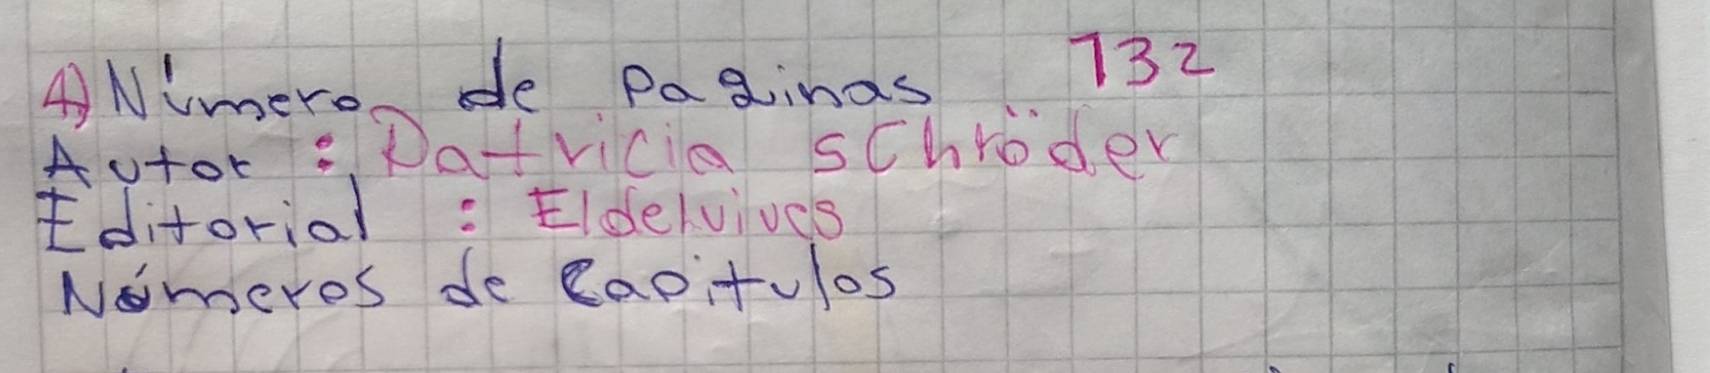 4) Número de Paginas 132
Autor : Patricia schröder
Editorial : Eldelvives
Números de Capitulos